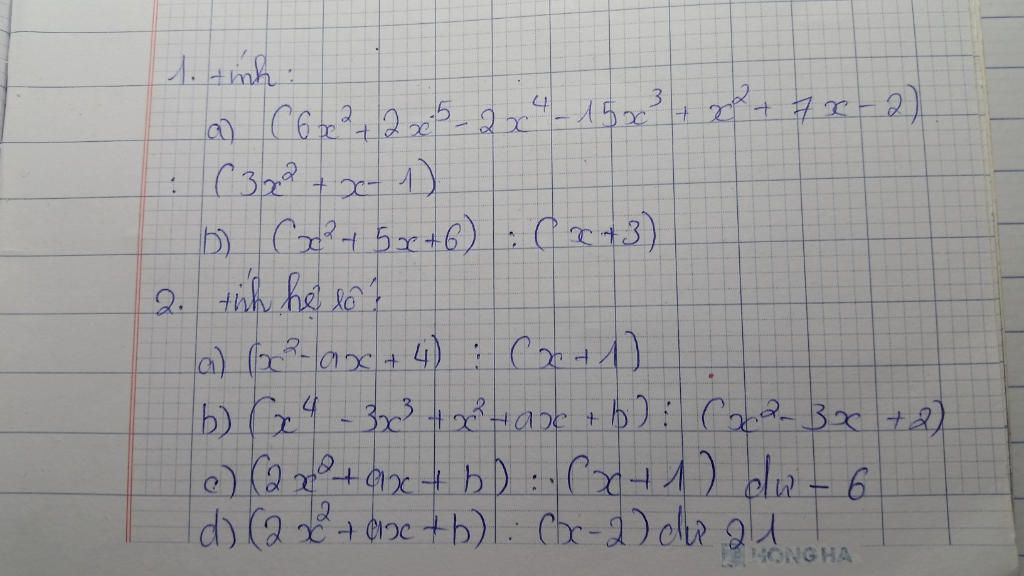 1. tính:
a) (6x² + 2x⁵ - 2x⁴ - 15x³ + x² + 7x - 2)
: (3x² + x - 1)
b) (x² + 5x + 6) : (x + 3)
2. tính hệ số:
a) (x² - ax + 4) ⋮ (x + 1)
b) (x⁴ - 3x³ + x² + ax + b) ⋮ (x² - 3x + 2)
c) (2x² + ax + b) : (x + 1) dư - 6
d) (2x² + ax + b) : (x - 2) dư 21
HONG HA